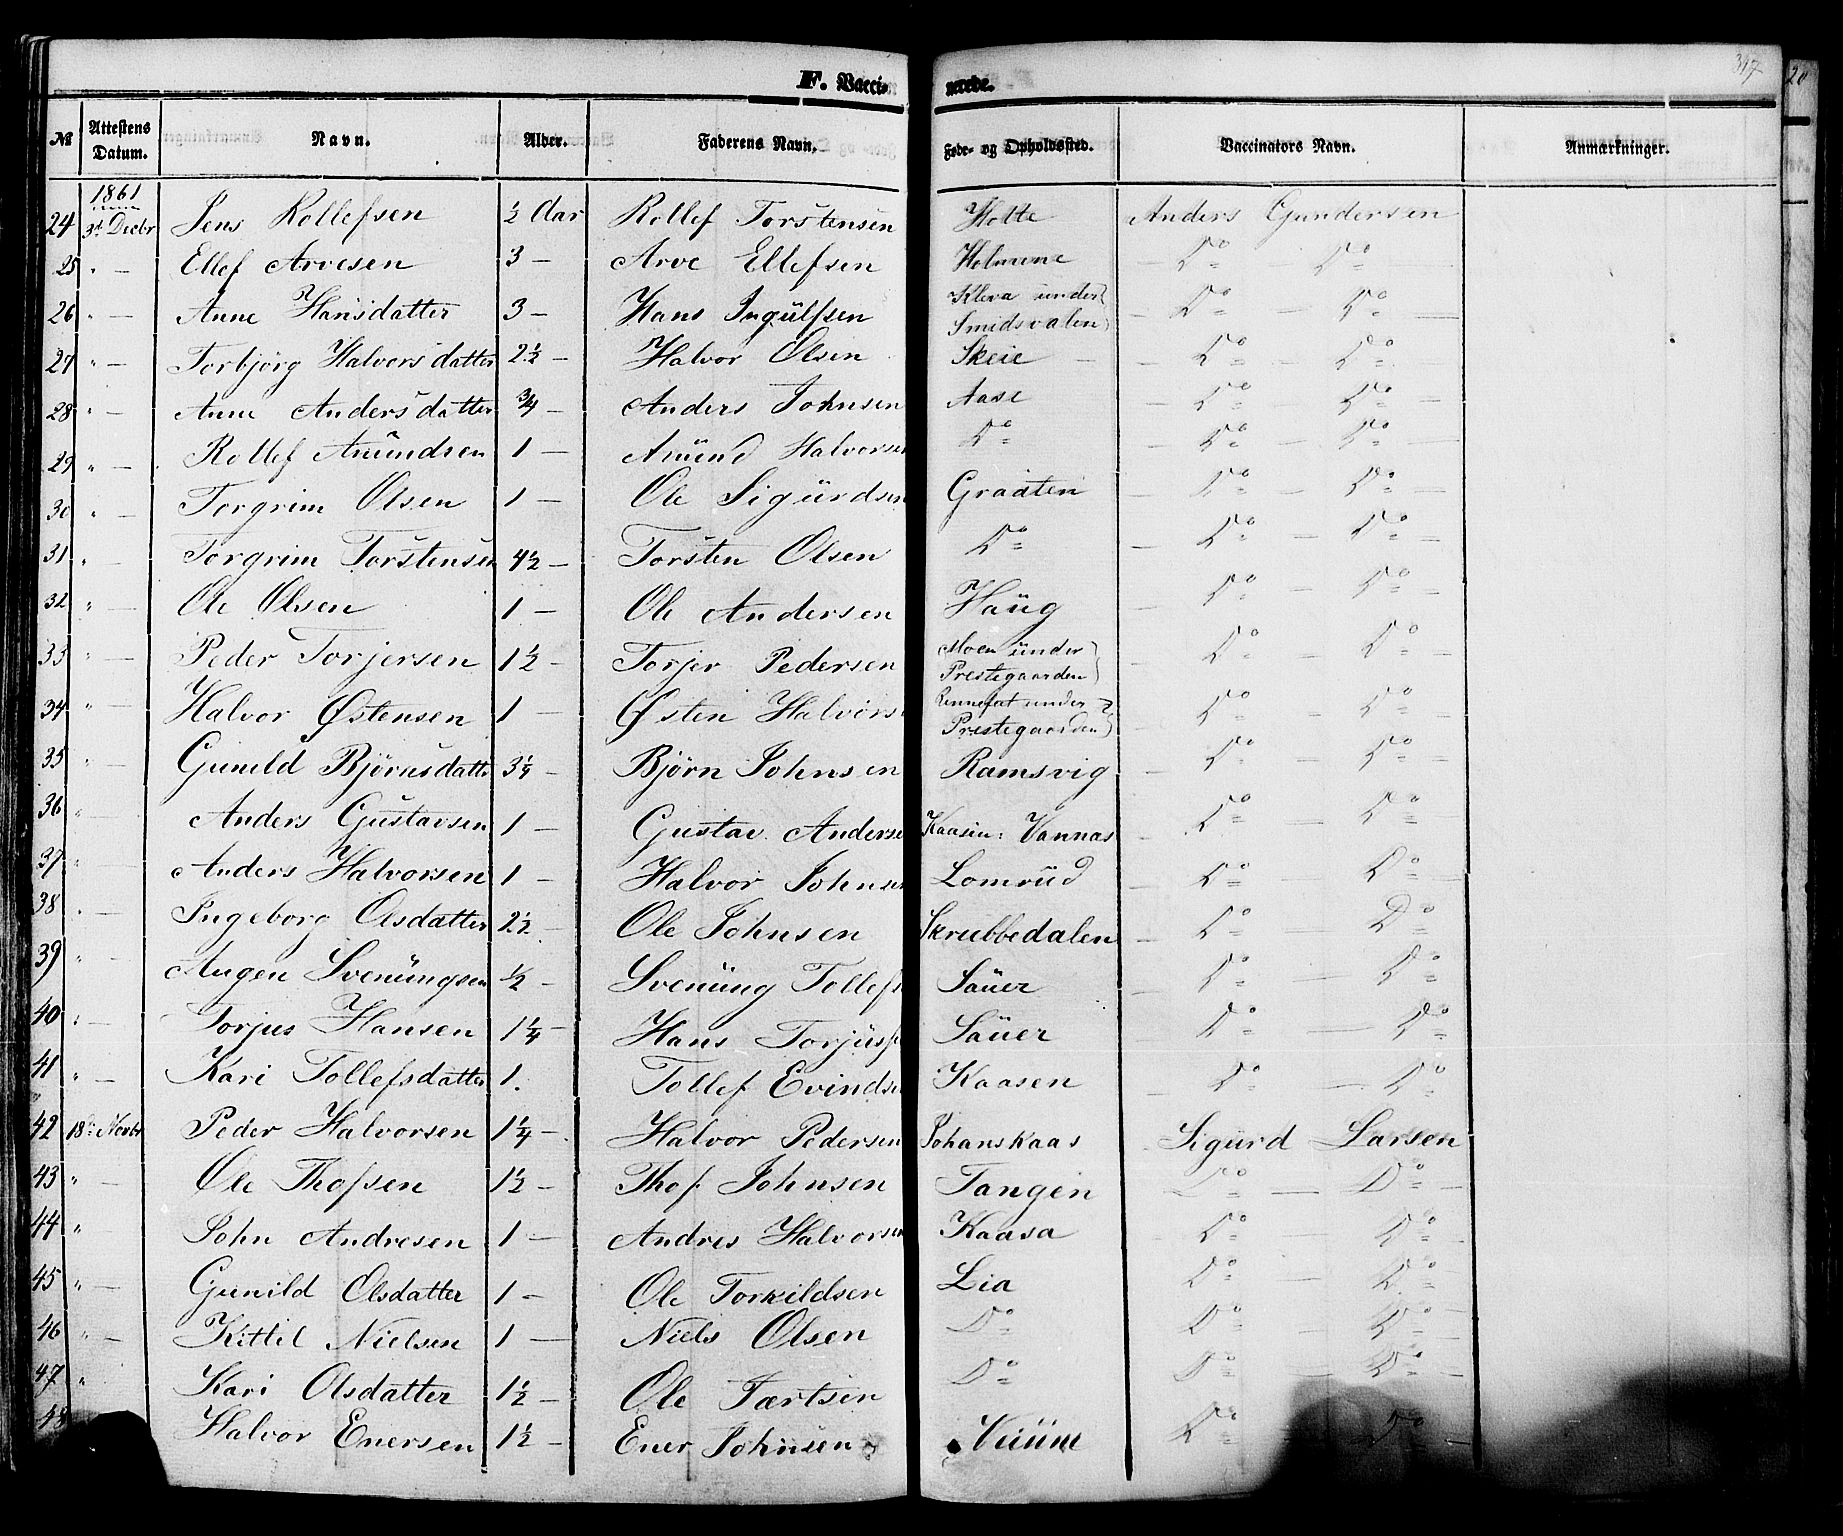 F. Vacci- nerede. 347
№ Attestens Datum. Navn. Alder. Faderens Navn. Føde- og Opholdssted. Vaccinators Navn. Anmærkninger.
1861
24 3d Decbr Jens Rollefsen ½ Aar Rollef Torstensen Holte Anders Gundersen
25 " — Ellef Arvesen 3 — Arve Ellefsen Holmene — Do — Do —
26 " — Anne Hansdatter 3 — Hans Ingulfsen Kleva under Smidsvalen — Do — Do —
27 " — Torbjörg Halvorsdatter 2½ — Halvor Olsen Skeie — Do — Do —
28 " — Anne Andersdatter ¾ — Anders Johnsen Aase — Do — Do —
29 " — Rollef Amundsen 1 — Amund Halvorsen Do — Do — Do —
30 " — Torgrim Olsen 1 — Ole Sigurdsen Graaten — Do — Do —
31 " — Torgrim Torstensen 4½ — Torsten Olsen Do — Do — Do —
32 " — Ole Olsen 1 — Ole Andersen Haug — Do — Do —
33 " — Peder Torjersen 1½ — Torjer Pedersen Moen under Prestegaarden — Do — Do —
34 " — Halvor Østensen 1 — Østen Halvors under Prestegaarden — Do — Do —
35 " — Gunild Björnsdatter 3¼ — Bjørn Johnsen Ramsvig — Do — Do —
36 " — Anders Gustavsen 1 — Gustav Anderse Kaasin: Vannas — Do — Do —
37 " — Anders Halvorsen 1 — Halvor Johnsen Lomrud — Do — Do —
38 " — Ingeborg Olsdatter 2½ — Ole Johnsen Skrubbedalen — Do — Do
39 " — Augen Svenungsen ½ — Svenung Tollefs Sauer — Do — Do
40 " — Torjus Hansen 1¼ — Hans Torjusse Sauer Do — Do
41 " — Kari Tollefsdatter 1. Tollef Evindse Kaasen Do — Do
42 18d Novbr Peder Halvorsen 1¼ — Halvor Pedersen Johanskaas Sigurd Larsen
43 " — Ole Thofsen 1½ — Thof Johnsen Tangen Do — Do —
44 " John Andresen 1 — Andres Halvorsen Kaasa Do — Do
45 " — Gunild Olsdatter 1 — Ole Torkildsen Lia Do — Do
46 " — Kittil Nielsen 1 — Niels Olsen Do Do — Do
47 " Kari Olsdatter 1½ — Ole Tærtsen Do Do — Do
48 Halvor Enersen 1½ — Ener Johnsen Do Do —